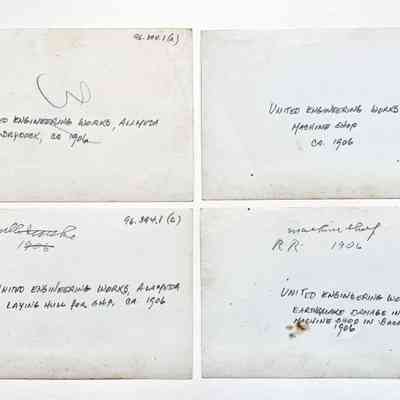 96.394.1(a)
ED ENGINEERING WORKS, ALAMEDA
DRYDOCK, CA 1906
UNITED ENGINEERING WORKS
MACHINE SHOP
CA. 1906
1906
96.394.1 (b)
UNITED ENGINEERING WORKS, ALAMEDA
LAYING HULL FOR SHIP. CA 1906
machine shop
R.R. 1906
UNITED ENGINEERING WO
EARTHQUAKE DAMAGE IN
MACHINE SHOP IN BAC
1906